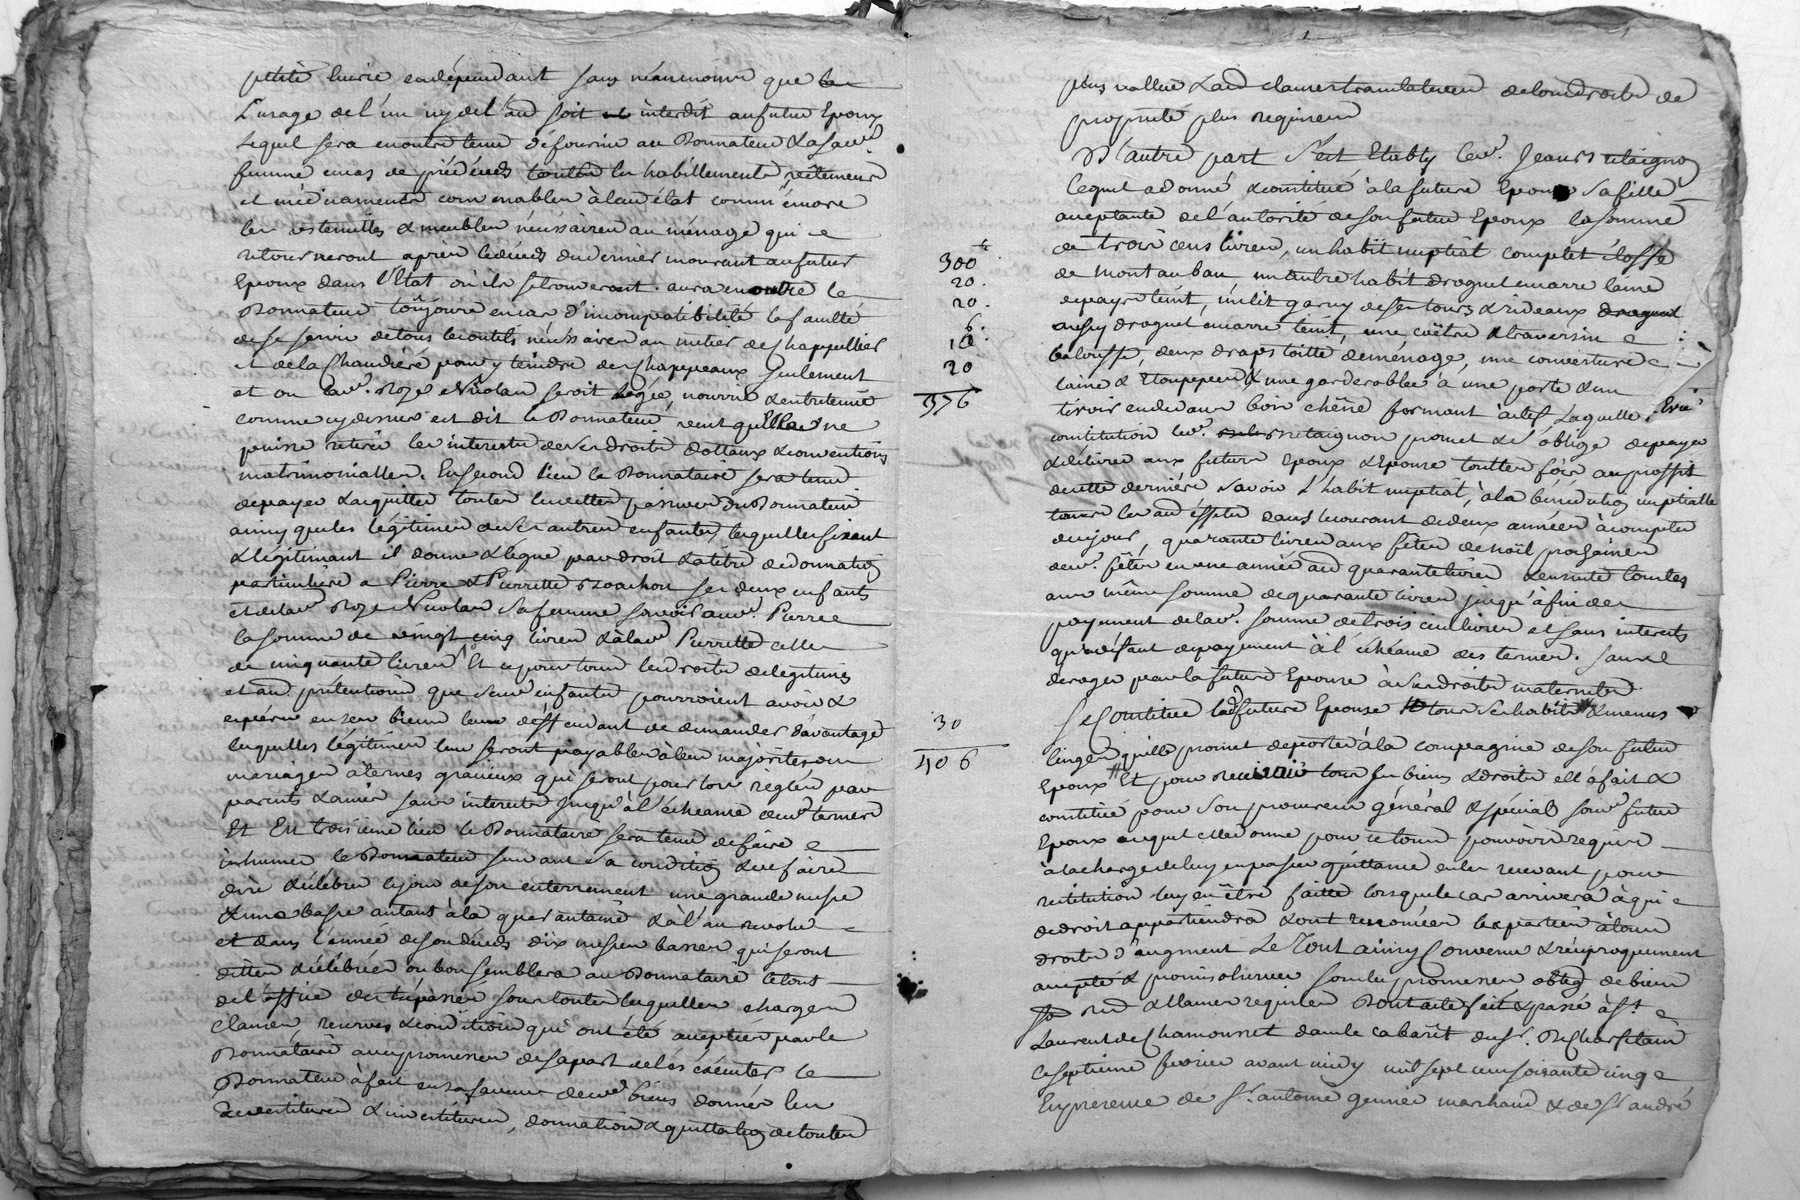 petite luirie en dépendant sans néanmoins que
l'usage de l'un ny de l'aû soit interdit au futur Epoux
lequel sera en outre tenu de fournir au Donnateur & a sa d.e
femme en cas de prédécès touttes les habillements vêtements
et médicaments convenables à leur état comm'encore
les ustenciles & meubles nécéssaires au ménage qui
retourneront après le décès du dernier mourant au futur
Epoux dans l'Etat où ils se trouveront. aura en outre le
Donnateur toûjours en cas d'incompatibilité la faculté
de se servir de tous les outils nécéssaires au métier de Chappellier
et de la Chaudiére pour y teindre des Chappeaux seulement
et ou lad. Roze Nicolas seroit logée, nourrie & entretenue
comme cy dessus est dit le Donnateur veut qu'Elle ne
puisse retirer les interests de ses droits dottaux & conventions
matrimonialles. En second lieu le Donnataire sera tenu
de payer & acquitter toutes les dettes passives du Donnateur
ainsy que les légitimes de ses autres enfants, lesquelles fixant
& légitimant il donne & lègue par droit & a titre de donnation
particulière a Pierre & Pierrette ses deux enfants
et de lad. Roze Nicolas sa femme sçavoir aud. Pierre
la somme de vingt cinq livres & à lad. Pierrette celle
de cinquante livres Et ce pour tous les droits de légitimes
et aû. prétentions que sesd. enfants pourroient avoir &
espérer en ses biens leur deffendant de demander d'avantage
lesquelles légitimes leur seront payables à leur majorité ou
mariages à termes gracieux qui seront pour lors réglés par
parents & amis sans interets jusqu'à l'échéance desd. termes
Et En troisieme lieu le Donnataire sera tenu de faire
inhumer le Donnateur suivant sa condition & de faire
dire & célébrer le jour de son enterrement une grande messe
& une basse autant à la quarantaine & à l'an revolu
et dans l'année de son décès dix messes basses qui seront
dittes & célébrées ou bon semblera au Donnataire le tout
de l'office des trépassés sous toutes lesquelles charges
clauses, reserves & conditions qui ont été acceptées par le
Donnataire avec promesses de sa part de les exécuter le
Donnateur à fait en sa faveur desd. biens donnés les
devestitures & investitures, donnation & quittation de toutes
plus vallue & aû clauses translatives de tous droits de
propriété plus requises
D'autre part s'est Etably led. Jean
lequel a donné & constitué à la future Epouse sa fille
acceptante de l'autorité de son futur Epoux la somme
de trois cens livres, un habit nuptial complet étoffe
de montauban, un autre habit droguet en arre laine
de pays teint, un lit garny de ses tours & rideaux
aussy droguet en arre teint, une coëtre & traversin
balouffe, deux draps toille de ménage, une couverture
laine & étouppes & une garderobbe a une porte & un
tiroir en dedans bois chêne fermant à clef Laquelle
constitution led. promet & s'oblige de payer
& délivrer aux futurs Epoux & Epouse toutte fois au proffit
de cette dernière savoir l'habit nuptial, à la bénédiction nuptialle
tous les aû effets dans le courant de deux années à compter
du jour, quarante livres aux fêtes de noël prochaines
desd. fêtes en une année aû quarante livres & ensuite touttes
aux même somme de quarante livres jusqu'à fin de
payement de lad. somme de trois cens livres et sans interets
qu'à défaut de payement à l'échéance des termes. sans
déroger par la future Epouse à ses droits maternels
Se Constitue lad. future Epouse tous ses habits & menus
linges qu'elle promet de porter à la compagnie de son futur
Epoux Et pour recevoir tous ses biens & droits ell'a fait &
constitué pour son procureur général & spécial sond. futur
Epoux auquel elle donne pour ce tous pouvoirs requis
à la charge de luy en passer quittance en les recevant pour
restitution luy en être faitte lorsque le cas arrivera à qui
de droit appartiendra & ont renoncées les parties à tous
droits d'augment Le Tout ainsy Convenu & réciproquement
accepté & promis observer sous les promesses oblig de biens
& clauses requises Dont acte fait & passé à St.
Laurent de Chamousset dans le cabaret du Sr.
Ce septieme fevrier avant midy mil sept cens soixante cinq
En presence de Sr. antoine marchand & de Sr. andré
300 lt
20.
20.
6.
10
20
376
30
406